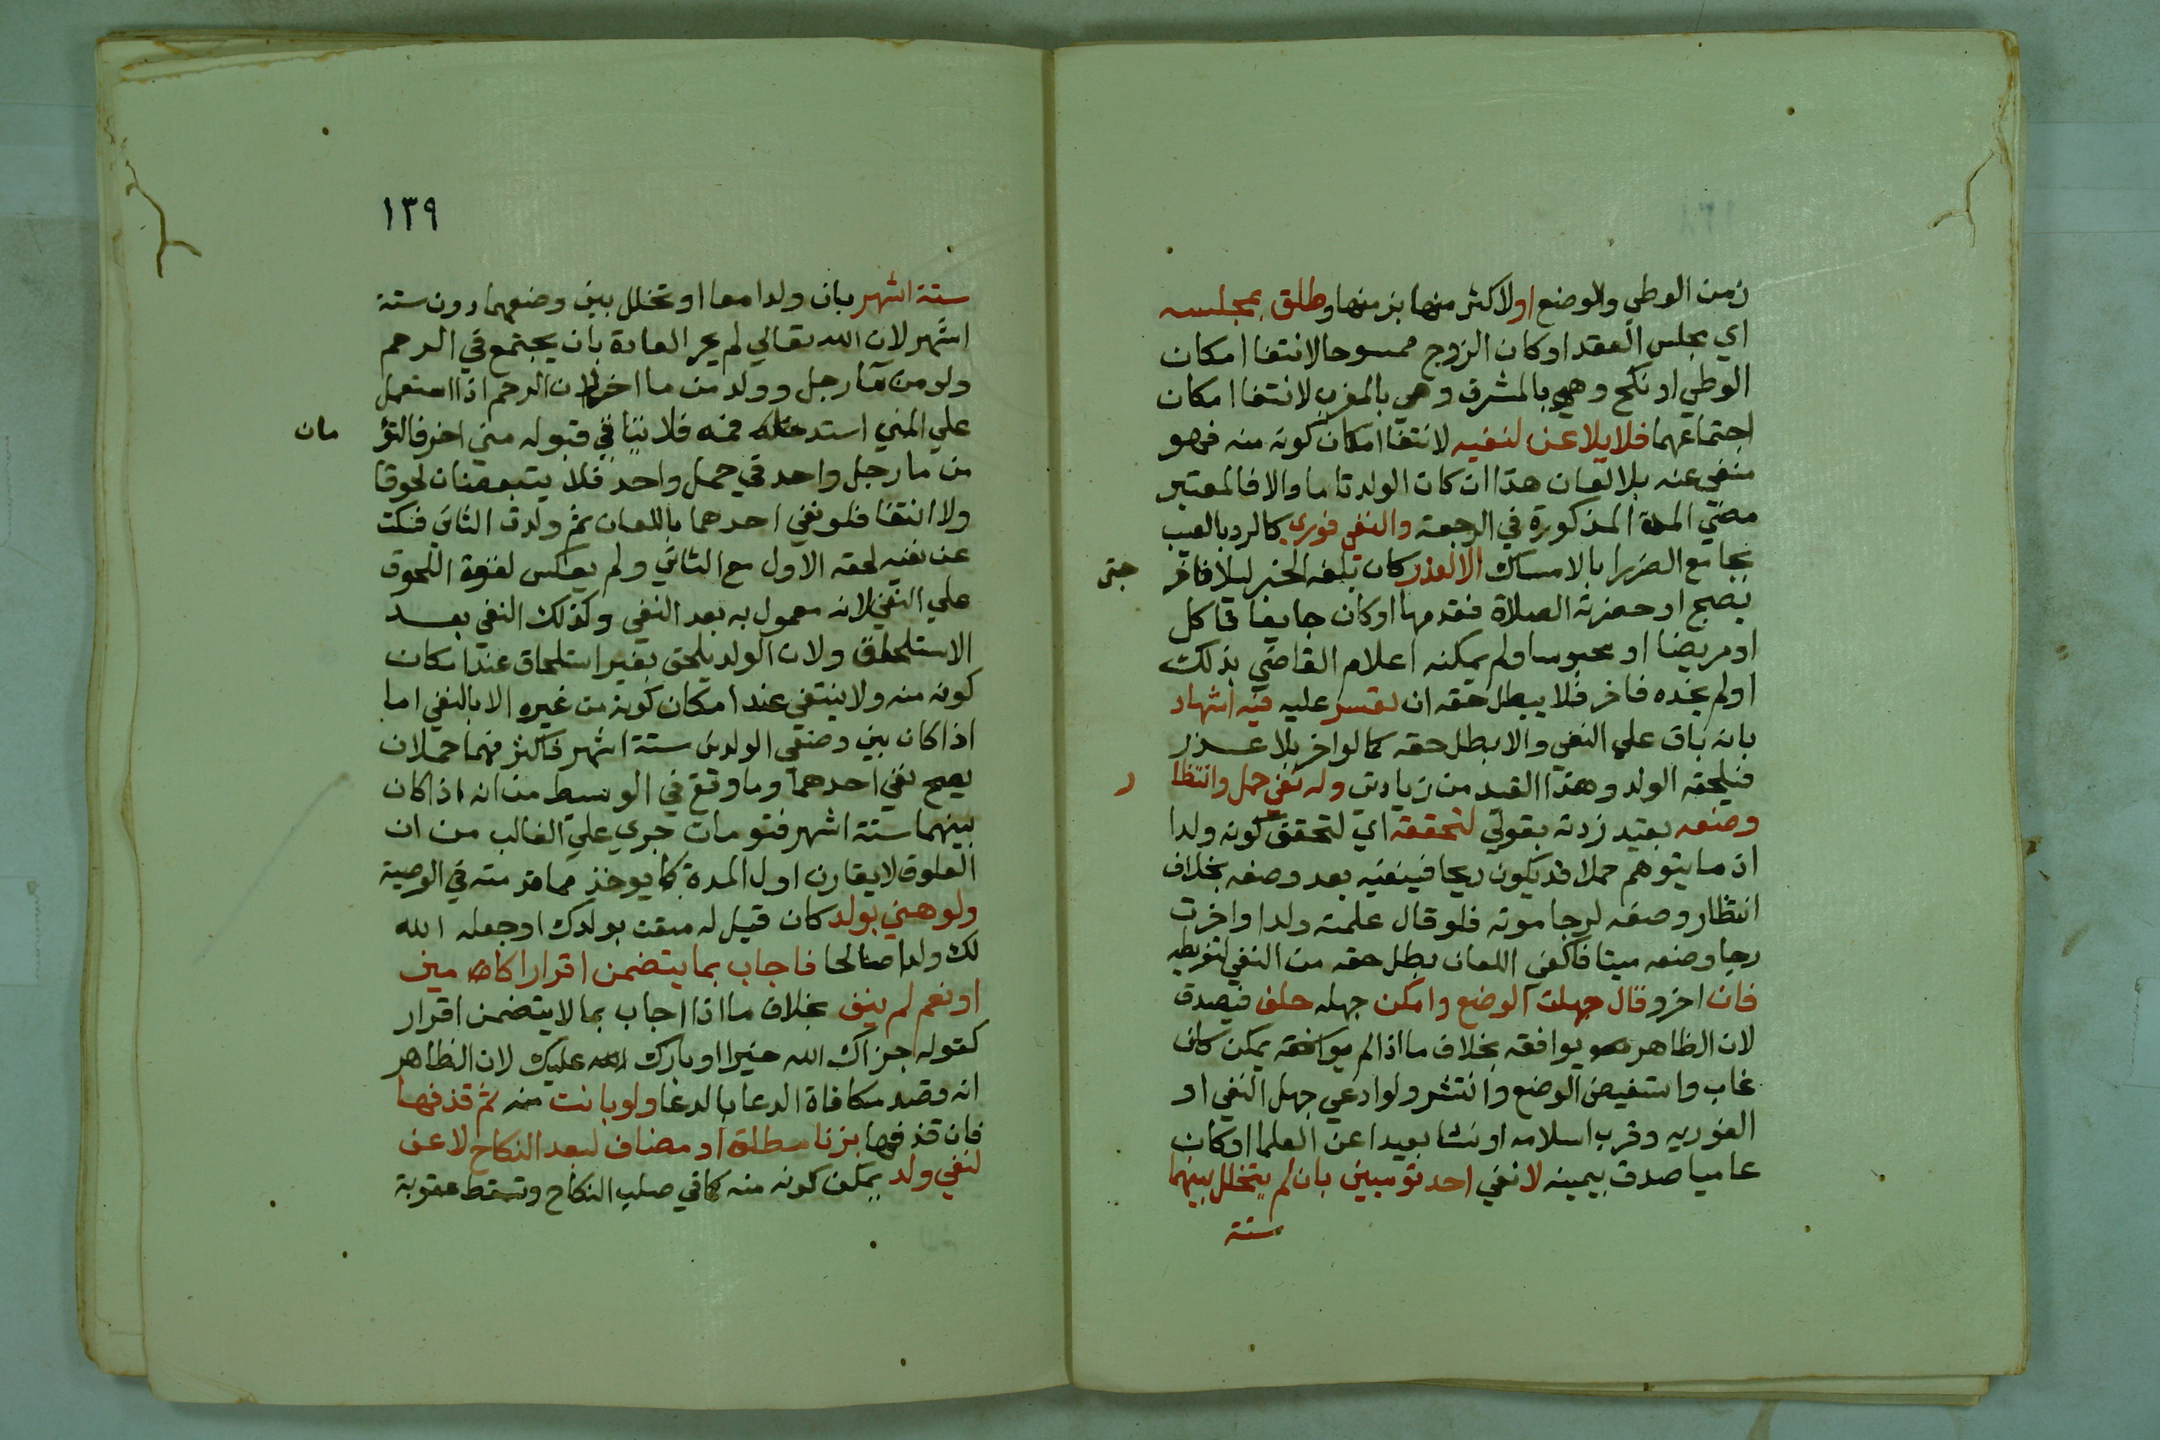 زمن الوطي والوضع اولاكثر منها بزمنها وطلق بمجلسه
اي مجلس العقد او كان الزوج ممسوحا لانتفا امكان
الوطي او نكح وهو بالمشرق وهي بالمغرب لانتفا امكان
اجتماعهما فلا يلاعن لنفيه لانتفا امكان كونه منه فهو
منفي عنه بلا لعان هذا ان كان الولد تاما والا فالمعتبر
مضي المدة المذكورة في الرجعة والنفي فوري كالرد بالعيب
بجامع الضرر بالامساك الا لعذر كان بلغه الخبر ليلا فاخر حتى
يصبح او حضرته الصلاة فقدمها او كان جايعا فاكل
او مريضا او محبوسا ولم يمكنه اعلام القاضي بذلك
او لم يجده فاخر فلا يبطل حقه ان تعسر عليه فيه اشهاد
بانه باق علي النفي والا بطل حقه كما لو اخر بلا عذر
فيلحقه الولد وهذا القيد من زيادتي وله نفي حمل وانتظا ر
وضعه بقيد زدته بقولي لتحققه اي لتحقق كونه ولدا
اذ ما يتوهم حملا قد يكون ريحا فينفيه بعد وضعه بخلاف
انتظار وضعه لرجا موته فلو قال علمته ولدا واخرت
رجا وضعه ميتا فاكفي اللعان بطل حقه من النفي لتفريطه
فان اخر وقال جهلت الوضع وامكن جهله حلف فيصدق
لان الظاهر يوافقه بخلاف ما اذا لم يمكن كان
غاب واستفيض الوضع وانتشر ولو ادعي جهل النفي او
الفوريه وقرب اسلامه او نشا بعيدا عن العلما او كان
عاميا صدق بيمينه لا نفي احد توميين بان لم يتخلل بينهما
ستة
١٣٩
ستة اشهر بان ولدا معا او تخلل بين وضعهما دون ستة
اشهر لان الله تعالي لم يجر العادة بان يجتمع في الرحم
ولد من ما رجل وولد من ما اخر لان الرحم اذا اشتمل
علي المني استد فمه فلا يتاتي قبوله مني اخر فالتو مان
من ما رجل واحد في حمل واحد فلا يتبعضان لحوقا
ولا انتفا فلو نفي احدهما باللعان ثم ولدت الثاني فسكت
عن نفيه لحقه الاول مع الثاني ولم يعكس لقوة اللحوق
علي النفي لانه معمول به بعد النفي وكذلك النفي بعد
الاستلحاق ولان الولد يلحق بغير استلحاق عند امكان
كونه منه ولا ينتفي عند امكان كونه من غيره الا بالنفي اما
اذا كان بين وضعي الولدين ستة اشهر فاكثر فهما حملان
يصح نفي احدهما وما وقع في الوسيط من انه اذا كان
بينهما ستة اشهر فتومان جري علي الغالب من ان
العلوق لا يقارن اول المدة كما يوخذ مما قدمته في الوصية
ولو هني بولد كان قيل له متعت بولدك او جعله الله
لك ولدا صالحا فاجاب بما يتضمن اقرارا كامين
او نعم لم ينف بخلاف ما اذا اجاب بما لا يتضمن اقرار
كقوله جزاك الله خيرا او بارك الله عليك لان الظاهر
انه قصد مكافاة الدعا بالدعا ولو بانت منه ثم قذفها
فان قذفها بزنا مطلق او مضاف لبعد النكاح لاعن
لنفي ولد يمكن كونه منه كما في صلب النكاح وتسقط عقوبة